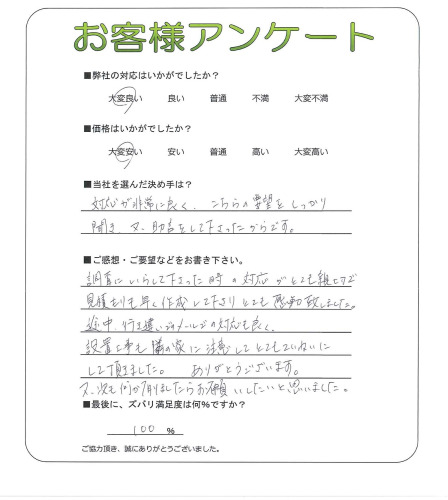 お客様アンケート
■弊社の対応はいかがでしたか?
大変良い 良い 普通 不満 大変不満
■価格はいかがでしたか?
大変安い 安い 普通 高い 大変高い
■当社を選んだ決め手は?
対応が非常に良く、こちらの要望をしっかり
聞き、又、助言をして下さったからです。
■ご感想・ご要望などをお書き下さい。
調査にいらして下さった時の対応がとても親切で
見積もりも早く作成して下さりとても感動致しました。
途中、行き違いのメールの対応も良く、
設置工事も隣の家に注意してとてもていねいに
して頂きました。ありがとうございます。
又、次も何か有りましたらお願いしたいと思いました。
■最後に、ズバリ満足度は何%ですか?
100 %
ご協力頂き、誠にありがとうございました。